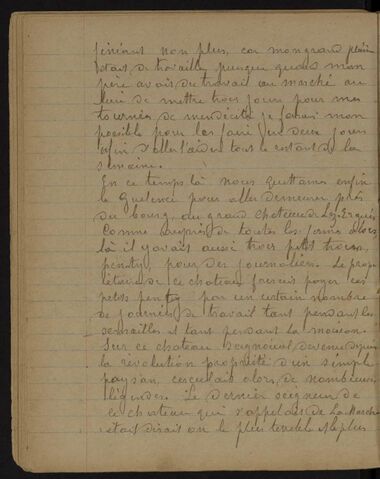 fénéant non plus, car mon grand plaisir
était de travailler, puisque quand mon
père avait du travail au marché au
lieu de mettre trois jours pour mes
tournées de mendicité je faisais mon
possible pour les faire en deux jours
afin d'aller l'aider tout le restant de la
semaine.
En ce temps là nous quittames enfin
le Guelenec pour aller demeurer près
du bourg, du grand chateau de Lez-Ergué
Comme auprès de toutes les fermes alors
là il y avait aussi trois petits trous,
penty, pour des journaliers. Le propri
étaire de ce chateau faisait payer ces
petits pentys par un certain nombre
de journées de travail tant pendant les
semailles et tant pendant la moisson.
Sur ce chateau seigneurial devenu depuis
la révolution propriété d'un simple
paysan, circulait alors, de nombreuses
légendes. Le dernier seigneur de
ce chateau qui s'appelait de La Marche
était disait on le plus terrible et le plus